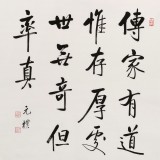 傳家有道
惟存厚處
世無奇但
率真
元禮